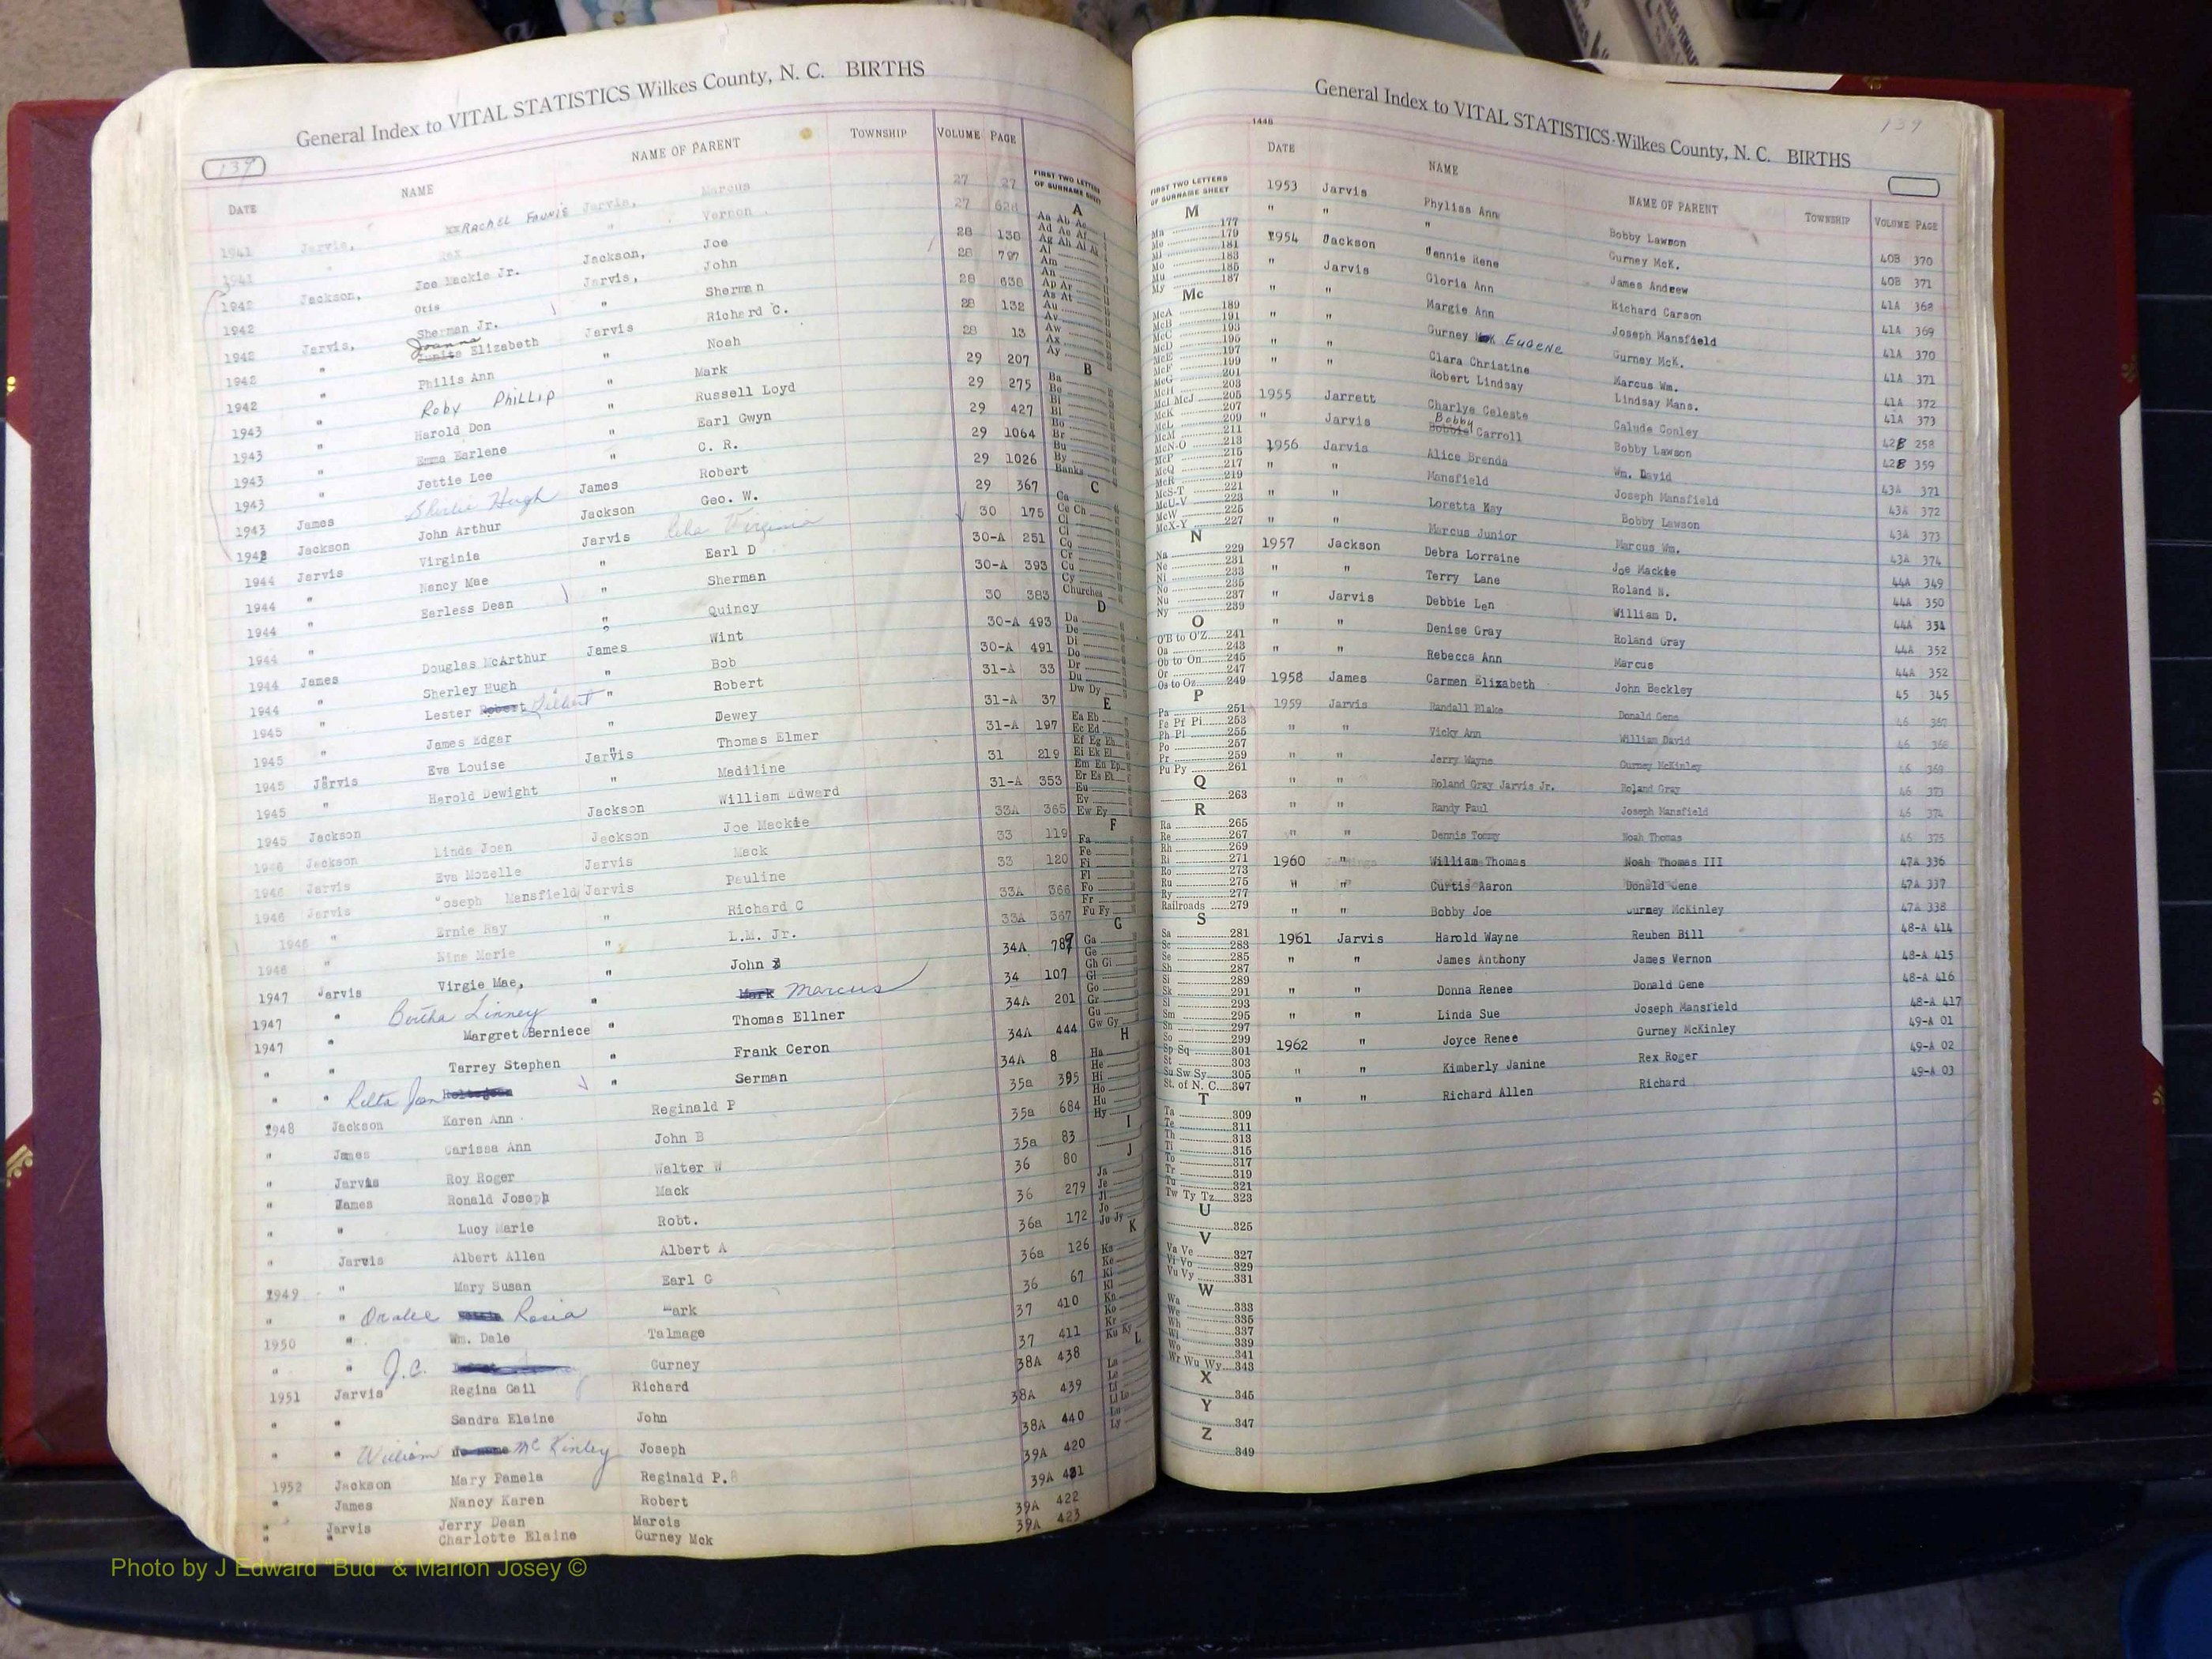 General Index to VITAL STATISTICS Wilkes County, N. C. BIRTHS
139
DATE NAME NAME OF PARENT TOWNSHIP VOLUME PAGE
1941 Jarvis, Rachel Faunie Jarvis, Marcus 27 27
1941 Rex " Vernon 27 628
1942 Jackson, Joe Mackie Jr. Jackson, Joe 28 138
1942 Otis Jarvis, John 28 797
1942 Jarvis, Sherman Jr. " Sherman 28 638
1942 " Joanna Elizabeth Jarvis Richard C. 28 132
1942 " Philis Ann " Noah 28 13
1943 " Roby Phillip " Mark 29 207
1943 " Harold Don " Russell Loyd 29 275
1943 " Emma Earlene " Earl Gwyn 29 427
1943 " Jettie Lee " C. R. 29 1064
1943 James Shirlie Hugh James Robert 29 1026
1942 Jackson John Arthur Jackson Geo. W. 29 367
1944 Jarvis Virginia Jarvis Virginia 30 175
1944 " Nancy Mae " Earl D 30-A 251
1944 " Earless Dean " Sherman 30-A 393
1944 " " Quincy 30 383
1944 James Douglas McArthur James Wint 30-A 493
1944 " Sherley Hugh " Bob 30-A 491
1945 " Lester Robert " Robert 31-A 33
1945 " James Edgar " Dewey 31-A 37
1945 Jarvis Eva Louise Jarvis Thomas Elmer 31-A 197
1945 " Harold Dewight " Madiline 31 219
1945 Jackson Jackson William Edward 31-A 353
1946 Jackson Linda Joen Jackson Joe Mackie 33A 365
1946 Jarvis Eva Mozelle Jarvis Mack 33 119
1946 Jarvis Joseph Mansfield Jarvis Pauline 33 120
1946 " Ernie Ray " Richard C 33A 366
1946 " Nina Marie " L.M. Jr. 33A 367
1947 Jarvis Virgie Mae, " John 34A 789
1947 " Bertha Linney " Mark Marcus 34 107
1947 " Margret Berniece " Thomas Ellner 34A 201
" " Tarrey Stephen " Frank Ceron 34A 444
" " Relta Jean " Serman 34A 8
1948 Jackson Karen Ann Reginald P 35a 395
" James Carissa Ann John B 35a 684
" Jarvis Roy Roger Walter W 35a 83
" James Ronald Joseph Mack 36 80
" " Lucy Marie Robt. 36 279
" Jarvis Albert Allen Albert A 36a 172
1949 " Mary Susan Earl G 36a 126
" " Oralee Rosia Mark 36 67
1950 " Wm. Dale Talmage 37 410
" " J.C. Gurney 37 411
1951 Jarvis Regina Gail Richard 38A 438
" " Sandra Elaine John 38A 439
" " William McKinley Joseph 38A 440
1952 Jackson Mary Pamela Reginald P. 39A 420
" James Nancy Karen Robert 39A 421
" Jarvis Jerry Dean Marcis 39A 422
" " Charlotte Elaine Gurney Mck 39A 423
FIRST TWO LETTERS
OF SURNAME SHEET
A
Aa Ab Ac
Ad Ae Af
Ag Ah Ai Ak
Al
Am
An
Ap Ar
As At
Au
Av
Aw
Ax
Ay
B
Ba
Be
Bi
Bl
Bo
Br
Bu
By
Banks
C
Ca
Ce Ch
Ci
Cl
Co
Cr
Cu
Cy
Churches
D
Da
De
Di
Do
Dr
Du
Dw Dy
E
Ea Eb
Ec Ed
Ef Eg Eh
Ei Ek El
Em En Ep
Er Es Et
Eu
Ev
Ew Ey
F
Fa
Fe
Fi
Fl
Fo
Fr
Fu Fy
G
Ga
Ge
Gh Gi
Gl
Go
Gr
Gu
Gw Gy
H
Ha
He
Hi
Ho
Hu
Hy
I
J
Ja
Je
Ji
Jo
Ju Jy
K
Ka
Ke
Ki
Kl
Kn
Ko
Kr
Ku Ky
L
La
Le
Li
Ll Lo
Lu
Ly
General Index to VITAL STATISTICS-Wilkes County, N. C. BIRTHS
139
1448
FIRST TWO LETTERS
OF SURNAME SHEET
M
Ma 177
Me 179
Mi 181
Mo 183
Mu 185
My 187
Mc
McA 189
McB 191
McC 193
McD 195
McE 197
McF 199
McG 201
McH 203
McI McJ 205
McK 207
McL 209
McM 211
McN-O 213
McP 215
McQ 217
McR 219
McS-T 221
McU-V 223
McW 225
McX-Y 227
N
Na 229
Ne 231
Ni 233
No 235
Nu 237
Ny 239
O
O'B to O'Z 241
Oa 243
Ob to On 245
Or 247
Os to Oz 249
P
Pa 251
Pe Pf Pi 253
Ph Pl 255
Po 257
Pr 259
Pu Py 261
Q
263
R
Ra 265
Re 267
Rh 269
Ri 271
Ro 273
Ru 275
Ry 277
Railroads 279
S
Sa 281
Sc 283
Se 285
Sh 287
Si 289
Sk 291
Sl 293
Sm 295
Sn 297
So 299
Sp Sq 301
St 303
Su Sw Sy 305
St. of N. C. 307
T
Ta 309
Te 311
Th 313
Ti 315
To 317
Tr 319
Tu 321
Tw Ty Tz 323
U
325
V
Va Ve 327
Vi Vo 329
Vu Vy 331
W
Wa 333
We 335
Wh 337
Wi 339
Wo 341
Wr Wu Wy 343
X
345
Y
347
Z
349
DATE NAME NAME OF PARENT TOWNSHIP VOLUME PAGE
1953 Jarvis Phyliss Ann Bobby Lawson 40B 370
" " " Gurney McK. 40B 371
1954 Jackson Jennie Rene James Andrew 41A 368
" Jarvis Gloria Ann Richard Carson 41A 369
" " Margie Ann Joseph Mansfield 41A 370
" " Gurney Eugene Gurney McK. 41A 371
" " Clara Christine Marcus Wm. 41A 372
" " Robert Lindsay Lindsay Mans. 41A 373
1955 Jarrett Charlye Celeste Calude Conley 42B 258
" Jarvis Bobby Carroll Bobby Lawson 42B 359
1956 Jarvis Alice Brenda Wm. David 43A 371
" " Mansfield Joseph Mansfield 43A 372
" " Loretta Kay Bobby Lawson 43A 373
" " Marcus Junior Marcus Wm. 43A 374
1957 Jackson Debra Lorraine Joe Mackie 44A 349
" " Terry Lane Roland N. 44A 350
" Jarvis Debbie Len William D. 44A 351
" " Denise Gray Roland Gray 44A 352
" " Rebecca Ann Marcus 44A 352
1958 James Carmen Elizabeth John Beckley 45 345
1959 Jarvis Randall Blake Donald Gene 46 367
" " Vicky Ann William David 46 368
" " Jerry Wayne Gurney McKinley 46 369
" " Roland Gray Jarvis Jr. Roland Gray 46 373
" " Randy Paul Joseph Mansfield 46 374
" " Dennis Tommy Noah Thomas 46 375
1960 " William Thomas Noah Thomas III 47A 336
" " Curtis Aaron Donald Gene 47A 337
" " Bobby Joe Gurney McKinley 47A 338
1961 Jarvis Harold Wayne Reuben Bill 48-A 414
" " James Anthony James Vernon 48-A 415
" " Donna Renee Donald Gene 48-A 416
" " Linda Sue Joseph Mansfield 48-A 417
1962 " Joyce Renee Gurney McKinley 49-A 01
" " Kimberly Janine Rex Roger 49-A 02
" " Richard Allen Richard 49-A 03
Photo by J Edward "Bud" & Marion Josey ©